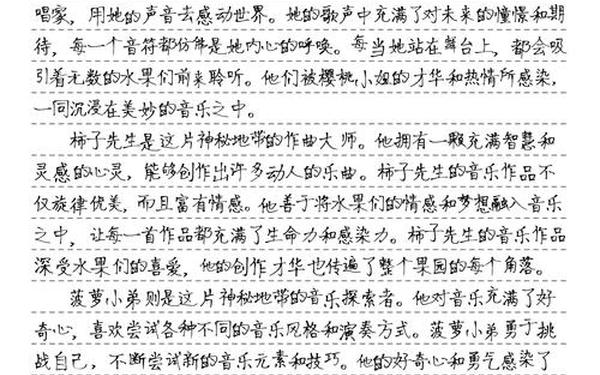 唱家，用她的声音去感动世界。她的歌声中充满了对未来的憧憬和期
待，每一个音符都仿佛是她内心的呼唤。每当她站在舞台上，都会吸
引着无数的水果们前来聆听。他们被樱桃小姐的才华和热情所感染，
一同沉浸在美妙的音乐之中。
柿子先生是这片神秘地带的作曲大师。他拥有一颗充满智慧和
灵感的心灵，能够创作出许多动人的乐曲。柿子先生的音乐作品不
仅旋律优美，而且富有情感。他善于将水果们的情感和梦想融入音乐
之中，让每一首作品都充满了生命力和感染力。柿子先生的音乐作品
深受水果们的喜爱，他的创作才华也传遍了整个果园的每个角落。
菠萝小弟则是这片神秘地带的音乐探索者。他对音乐充满了好
奇心，喜欢尝试各种不同的音乐风格和演奏方式。菠萝小弟勇于挑
战自己，不断尝试新的音乐元素和技巧。他的好奇心和勇气感染了